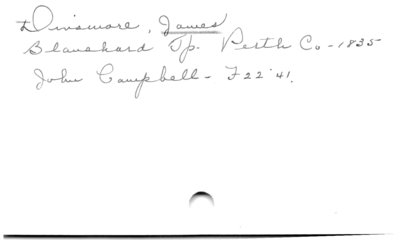 Dinsmore, James
Blanchard Tp. Perth Co - 1835
John Campbell - F 22 '41.